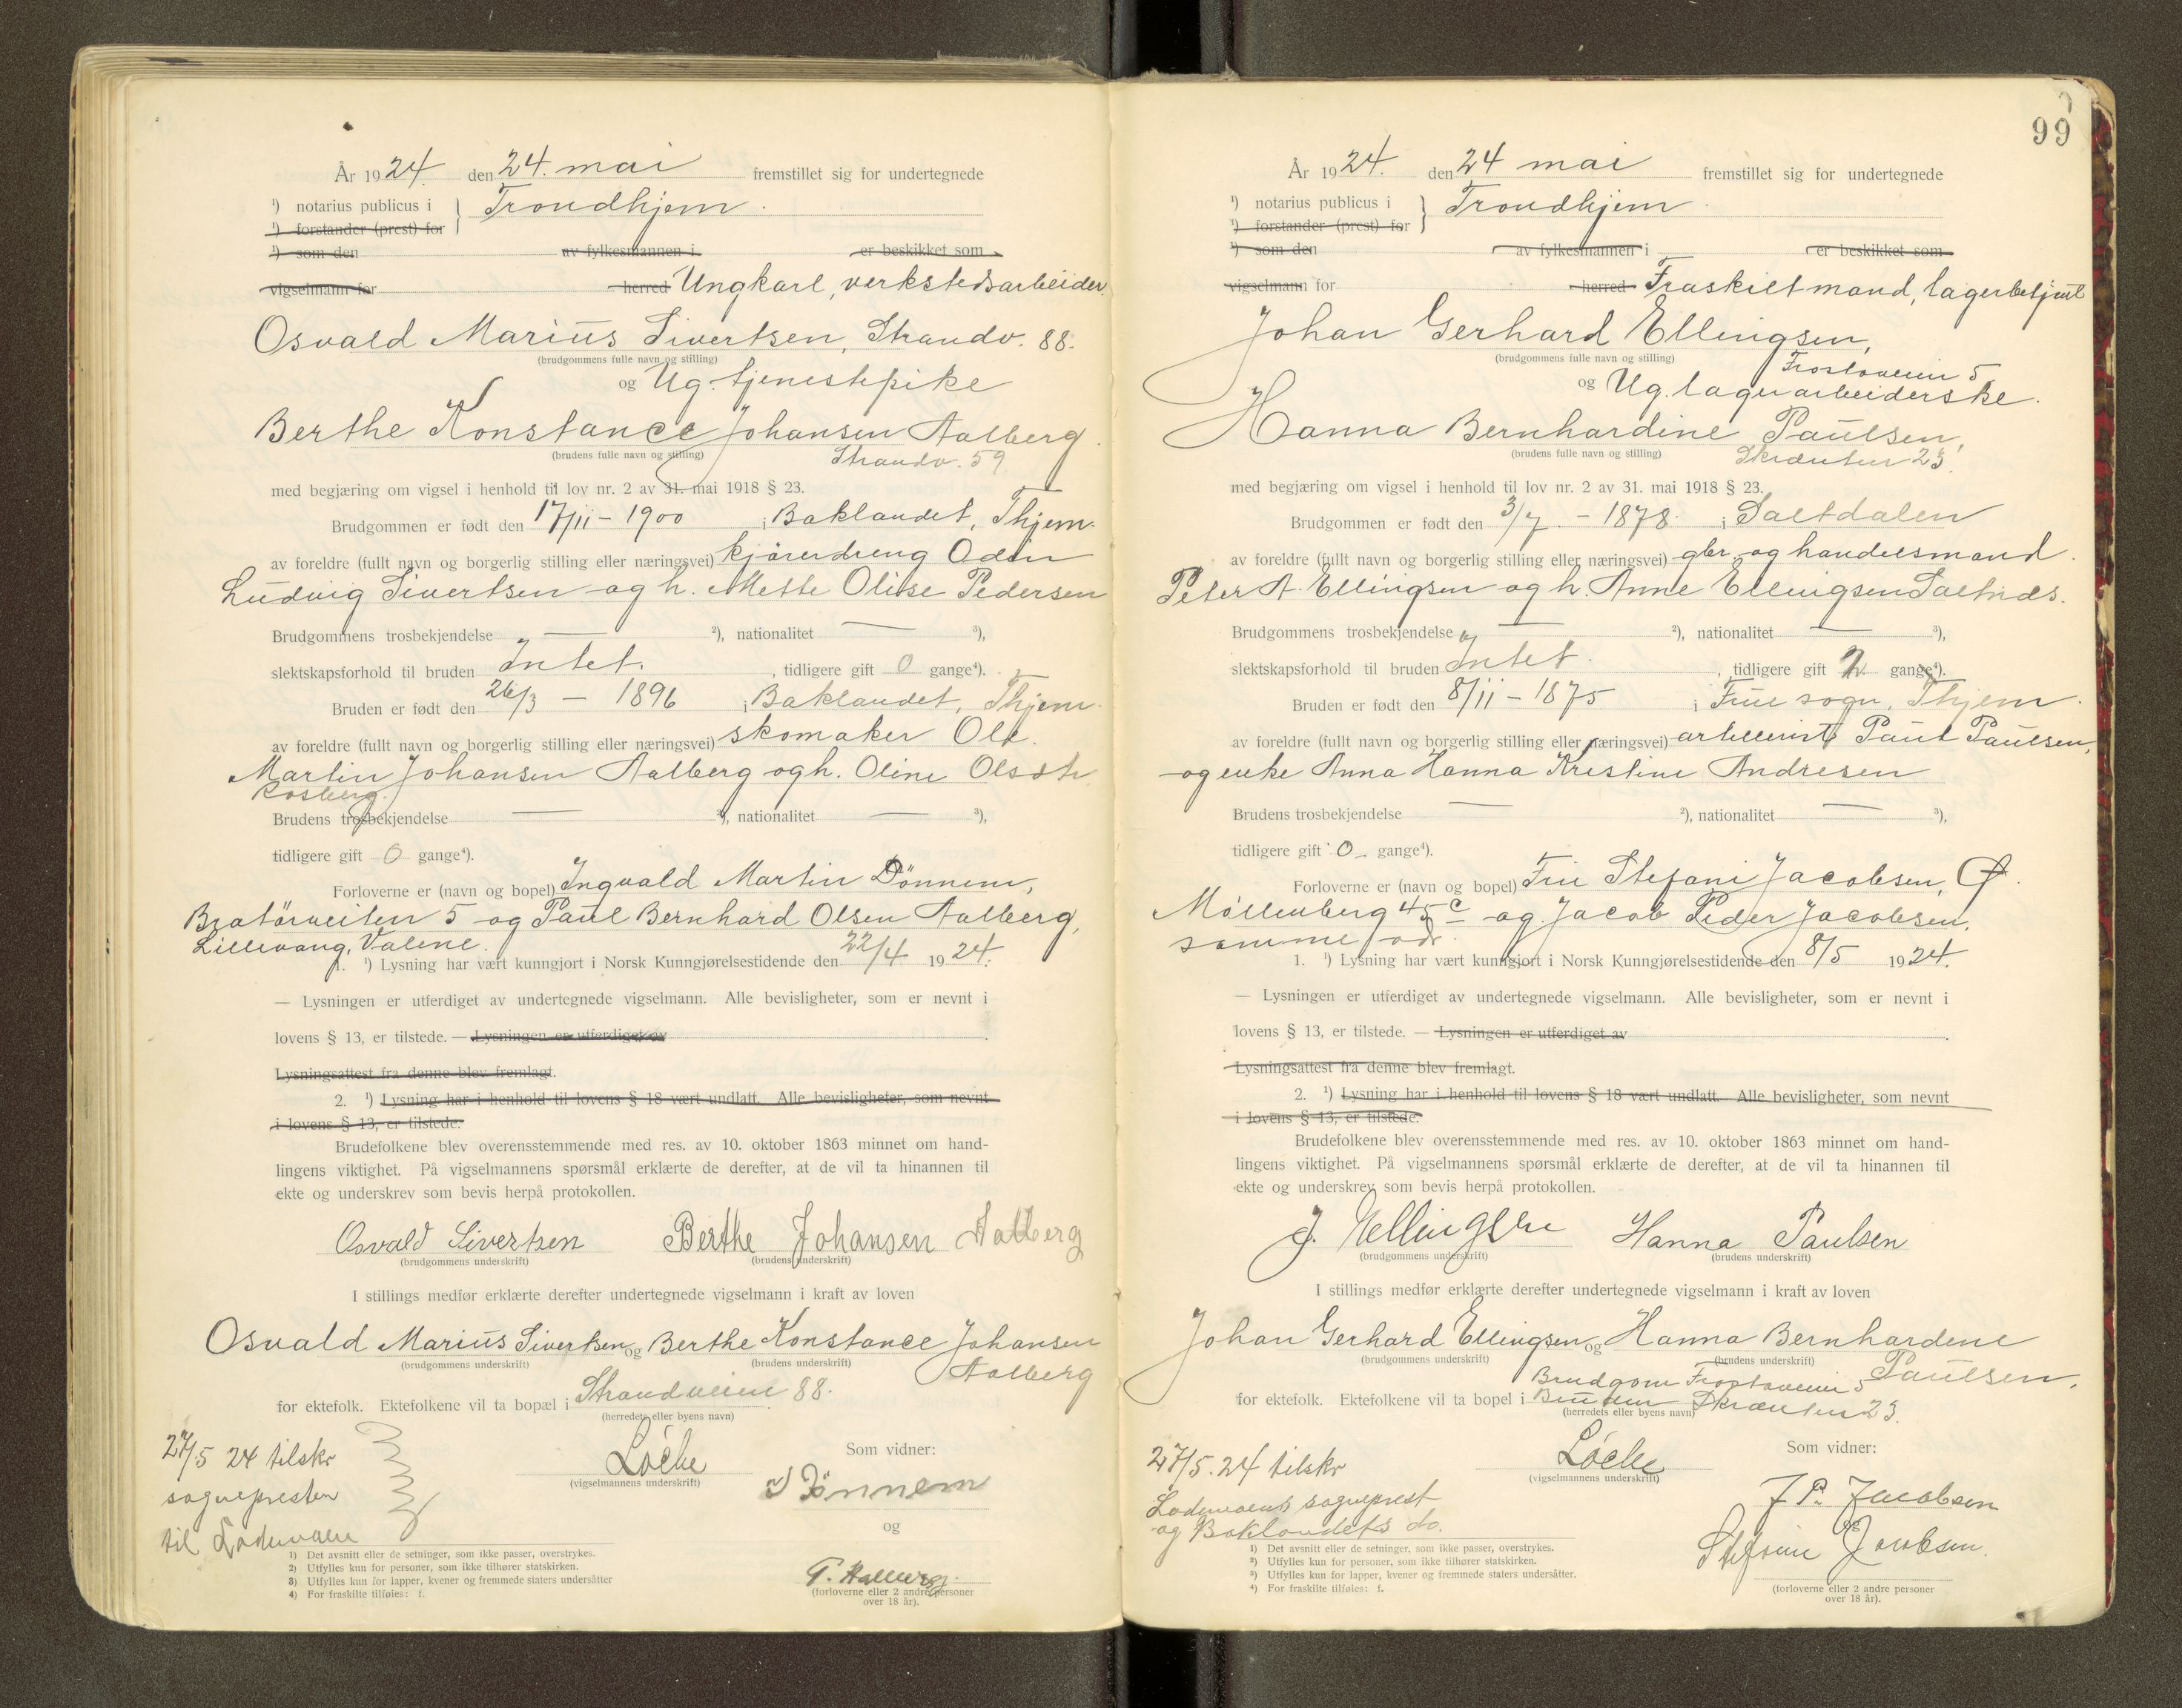 År 1924. den 24. mai fremstillet sig for undertegnede
¹) notarius publicus i } Trondhjem.
¹) forstander (prest) for
¹) som den av fylkesmannen i er beskikket som
vigselmann for herred Ungkarl, verkstedsarbeider
Osvald Marius Sivertsen, Strandv. 88.
(brudgommens fulle navn og stilling)
og Ug. tjenestepike
Berthe Konstance Johansen Aalberg.
(brudens fulle navn og stilling) Strandv. 59
med begjæring om vigsel i henhold til lov nr. 2 av 31. mai 1918 § 23.
Brudgommen er født den 17/11 - 1900 i Baklandet, Thjem.
av foreldre (fullt navn og borgerlig stilling eller næringsvei) kjøredreng Odin
Ludvig Sivertsen og h. Mette Olise Pedersen
Brudgommens trosbekjendelse — ²), nationalitet — ³),
slektskapsforhold til bruden Intet. , tidligere gift 0 gange⁴).
Bruden er født den 26/3 - 1896 i Baklandet, Thjem.
av foreldre (fullt navn og borgerlig stilling eller næringsvei) skomaker Ole
Martin Johansen Aalberg og h. Oline Olsdtr
Rosberg.
Brudens trosbekjendelse — ²), nationalitet — ³),
tidligere gift 0 gange⁴).
Forloverne er (navn og bopel) Ingvald Martin Dønnem,
Bratørveiten 5 og Paul Bernhard Olsen Aalberg,
Lillevang, Valene.
1. ¹) Lysning har vært kunngjort i Norsk Kunngjørelsestidende den 22/4 1924.
— Lysningen er utferdiget av undertegnede vigselmann. Alle bevisligheter, som er nevnt i
lovens § 13, er tilstede. — Lysningen er utferdiget av
Lysningsattest fra denne blev fremlagt.
2. ¹) Lysning har i henhold til lovens § 18 vært undlatt. Alle bevisligheter, som nevnt
i lovens § 13, er tilstede.
Brudefolkene blev overensstemmende med res. av 10. oktober 1863 minnet om hand-
lingens viktighet. På vigselmannens spørsmål erklærte de derefter, at de vil ta hinannen til
ekte og underskrev som bevis herpå protokollen.
Osvald Sivertsen Berthe Johansen Aalberg
(brudgommens underskrift) (brudens underskrift)
I stillings medfør erklærte derefter undertegnede vigselmann i kraft av loven
Osvald Marius Sivertsen og Berthe Konstance Johansen
(brudgommens underskrift) (brudens underskrift) Aalberg
for ektefolk. Ektefolkene vil ta bopæl i Strandveien 88.
(herredets eller byens navn)
27/5 24 tilskr
sognepresten
til Lademoen
Løche
(vigselmannens underskrift)
Som vidner:
I Dønnem
og
P. Aalberg.
(forloverne eller 2 andre personer
over 18 år).
1) Det avsnitt eller de setninger, som ikke passer, overstrykes.
2) Utfylles kun for personer, som ikke tilhører statskirken.
3) Utfylles kun for lapper, kvener og fremmede staters undersåtter
4) For fraskilte tilføies: f.
99
År 1924. den 24 mai fremstillet sig for undertegnede
¹) notarius publicus i } Trondhjem.
¹) forstander (prest) for
¹) som den av fylkesmannen i er beskikket som
vigselmann for herred Fraskilt mand, lagerbetjent
Johan Gerhard Ellingsen,
(brudgommens fulle navn og stilling) Frostaveien 5
og Ug. lagerarbeiderske.
Hanna Bernhardine Paulsen,
(brudens fulle navn og stilling) Skrænten 23.
med begjæring om vigsel i henhold til lov nr. 2 av 31. mai 1918 § 23.
Brudgommen er født den 3/7 - 1878. i Saltdalen
av foreldre (fullt navn og borgerlig stilling eller næringsvei) gbr. og handelsmand.
Peter A. Ellingsen og h. Anne Ellingsen Saltnes.
Brudgommens trosbekjendelse — ²), nationalitet — ³),
slektskapsforhold til bruden Intet. , tidligere gift gange⁴).
Bruden er født den 8/11 - 1875 i Frue sogn, Thjem.
av foreldre (fullt navn og borgerlig stilling eller næringsvei) artillerist Paul Paulsen,
og enke Anna Hanna Kristine Andresen
Brudens trosbekjendelse — ²), nationalitet — ³),
tidligere gift 0 gange⁴).
Forloverne er (navn og bopel) Fru Stefani Jacobsen,
Møllenberg 45 c og Jacob Peder Jacobsen,
samme adr.
1. ¹) Lysning har vært kunngjort i Norsk Kunngjørelsestidende den 8/5 1924.
— Lysningen er utferdiget av undertegnede vigselmann. Alle bevisligheter, som er nevnt i
lovens § 13, er tilstede. — Lysningen er utferdiget av
Lysningsattest fra denne blev fremlagt.
2. ¹) Lysning har i henhold til lovens § 18 vært undlatt. Alle bevisligheter, som nevnt
i lovens § 13, er tilstede.
Brudefolkene blev overensstemmende med res. av 10. oktober 1863 minnet om hand-
lingens viktighet. På vigselmannens spørsmål erklærte de derefter, at de vil ta hinannen til
ekte og underskrev som bevis herpå protokollen.
J. Ellingsen Hanna Paulsen
(brudgommens underskrift) (brudens underskrift)
I stillings medfør erklærte derefter undertegnede vigselmann i kraft av loven
Johan Gerhard Ellingsen og Hanna Bernhardene
(brudgommens underskrift) (brudens underskrift) Paulsen,
Brudgom Frostaveien 5
for ektefolk. Ektefolkene vil ta bopel i Bruden Skrænten 23.
(herredets eller byens navn)
27/5.24 tilskr
Lademoens sogneprest
og Baklandets do.
Løche
(vigselmannens underskrift)
Som vidner:
J P. Jacobsen
og
Stefanie Jacobsen.
(forloverne eller 2 andre personer
over 18 år).
1) Det avsnitt eller de setninger, som ikke passer, overstrykes.
2) Utfylles kun for personer, som ikke tilhører statskirken.
3) Utfylles kun for lapper, kvener og fremmede staters undersåtter.
4) For fraskilte tilføies: f.